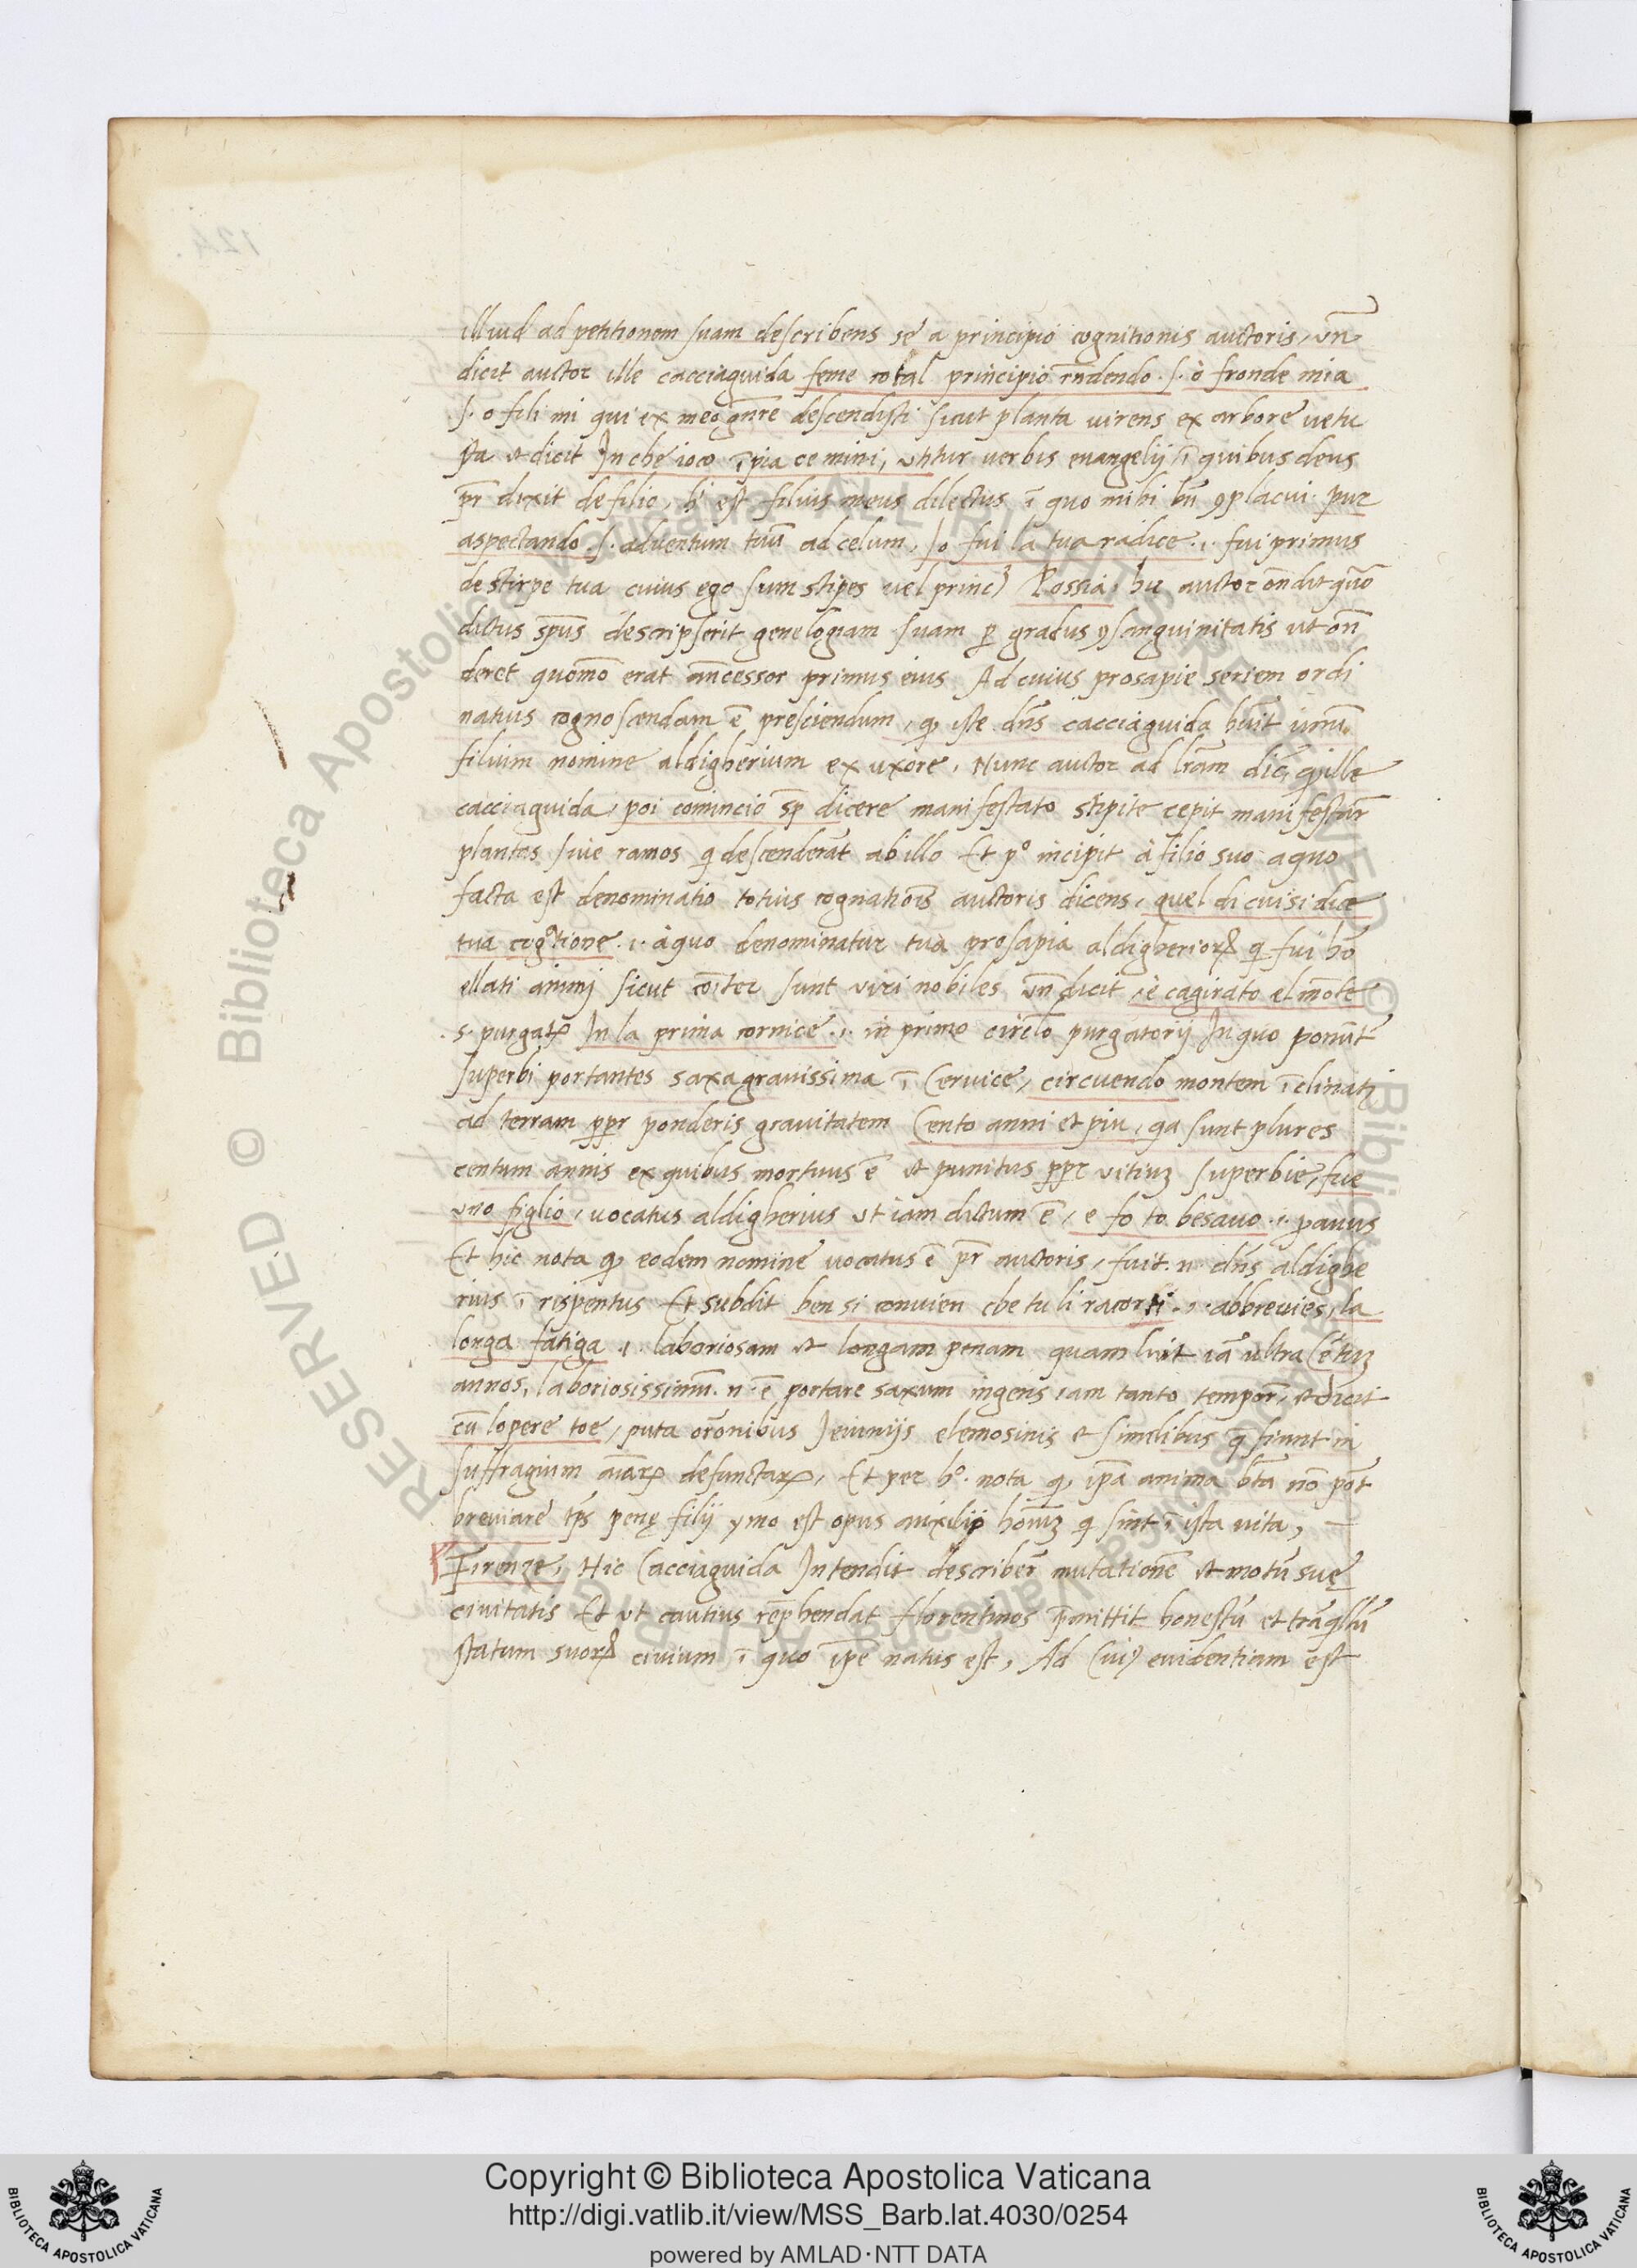 illud ad petitionem suam describens se a principio cognitionis auctoris, vn̄
dicit auctor ille cacciaguida feme cotal principio rn̄dendo .s. ò fronde mia
.s. o fili mi qui ex meo gn̄re descendisti sicut planta virens ex arbore uetu
sta et dicit In che ioco ī pia ce mini, utitur uerbis euangelij ī quibus deus
pr̄ dixit de filio, h' est filius meus dilectus ī quo mihi bn̄ ꝯplacui pur
aspectando .s. aduentum tuū ad celum, Io fui la tua radice .i. fui primus
de stirpe tua cuius ego sum stipes uel princ Possia, hic auctor on̄dit quō
dictus spūs descripserit genelogiam suam ꝑ gradus ꝯsanguinitatis ut on̄
deret quōmō erat ancessor primus eius Ad cuius prosapie seriem ordi
natius cognoscendam ē presciendum, ꝙ iste dn̄s cacciaguida hūit unū
filium nomine aldigherium ex uxore, Nunc auctor ad lr̄am dic̄ ꝙ ille
cacciaguida, poi comincio sp̄ dicere manifestato stipite cepit manifestar̄
plantas siue ramos q̄ descenderāt ab illo Et pº incipit à filio suo a quo
facta est denominatio totius cognatiōis auctoris dicens, quel di cui si dice
tua cogᵃtione .i. à quo denominatur tua prosapia aldigherioꝝ q̄ fui hō
ellati animj sicut cōiter sunt viri nobiles vn̄ dicit, è cagirato el mōte
.s. purgatꝝ In la prima cornice .i. in primo circlō purgatorij In quo ponūt
superbi portantes saxa grauissima ī ceruice, circuendo montem ī clinatj
ad terram ꝓpr ponderis grauitatem Cento anni et piu, qa sunt plures
centum annis ex quibus mortuus ē et punitus ꝓpr vitiuꝫ superbie, fue
vno figlio, uocatus aldigherius ut iam dictum ē, e fo to besauo .i. ꝓauus
Et hic nota ꝙ eodem nomine uocatus ē pr̄ auctoris, fuit .n. dn̄s aldighe
rius ī rispentus Et subdit ben si conuien che tu li racorti .i. abbreuies, la
longa fatiga .i. laboriosam et longam penam quam luit iā ultra cētuꝫ
annos, laboriosissimū .n. ē portare saxum ingens iam tanto tempor̄, et dicit
cū lopere toe, puta orōnibus Ieiunijs elemosinis et similibus q̄ fiunt in
suffragium aīarꝝ defunctarꝝ, Et per hº. nota ꝙ ip̄a anima btā nō pōt
breuiare tp̄s penę filij ymo est opus auxilijo hoīuꝫ q̄ sint ī ista uita,
Firenze, Hic Cacciaguida Intendit describer̄ mutationē et motū suę
ciuitatis Et ut cautius rep̄hendat florentinos p̄mittit honestū et trāqllū
statum suoꝝ ciuium ī quo ip̄e natus est, Ad cui' euidentiam est
Copyright © Biblioteca Apostolica Vaticana
http://digi.vatlib.it/view/MSS_Barb.lat.4030/0254
powered by AMLAD·NTT DATA
BIBLIOTECA APOSTOLICA VATICANA
BIBLIOTECA APOSTOLICA VATICANA